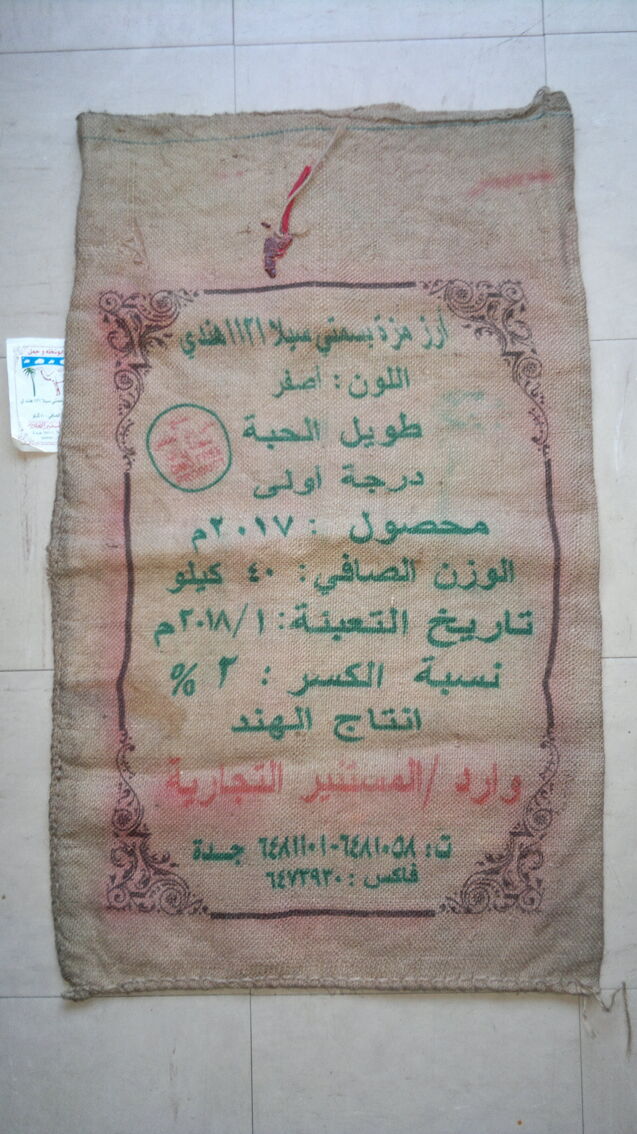 أرز مزة بسمتي سيلا ١١٢١ هندي
اللون : أصفر
طويل الحبة
درجة أولى
محصول : ٢٠١٧م
الوزن الصافي : ٤٠ كيلو
تاريخ التعبئة : ٢٠١٨/١م
نسبة الكسر : ٢ %
انتاج الهند
وارد / المستنير التجارية
ت : ٦٤٨١١٠١-٦٤٨١٠٥٨ جدة
فاكس : ٦٤٧٣٩٣٠